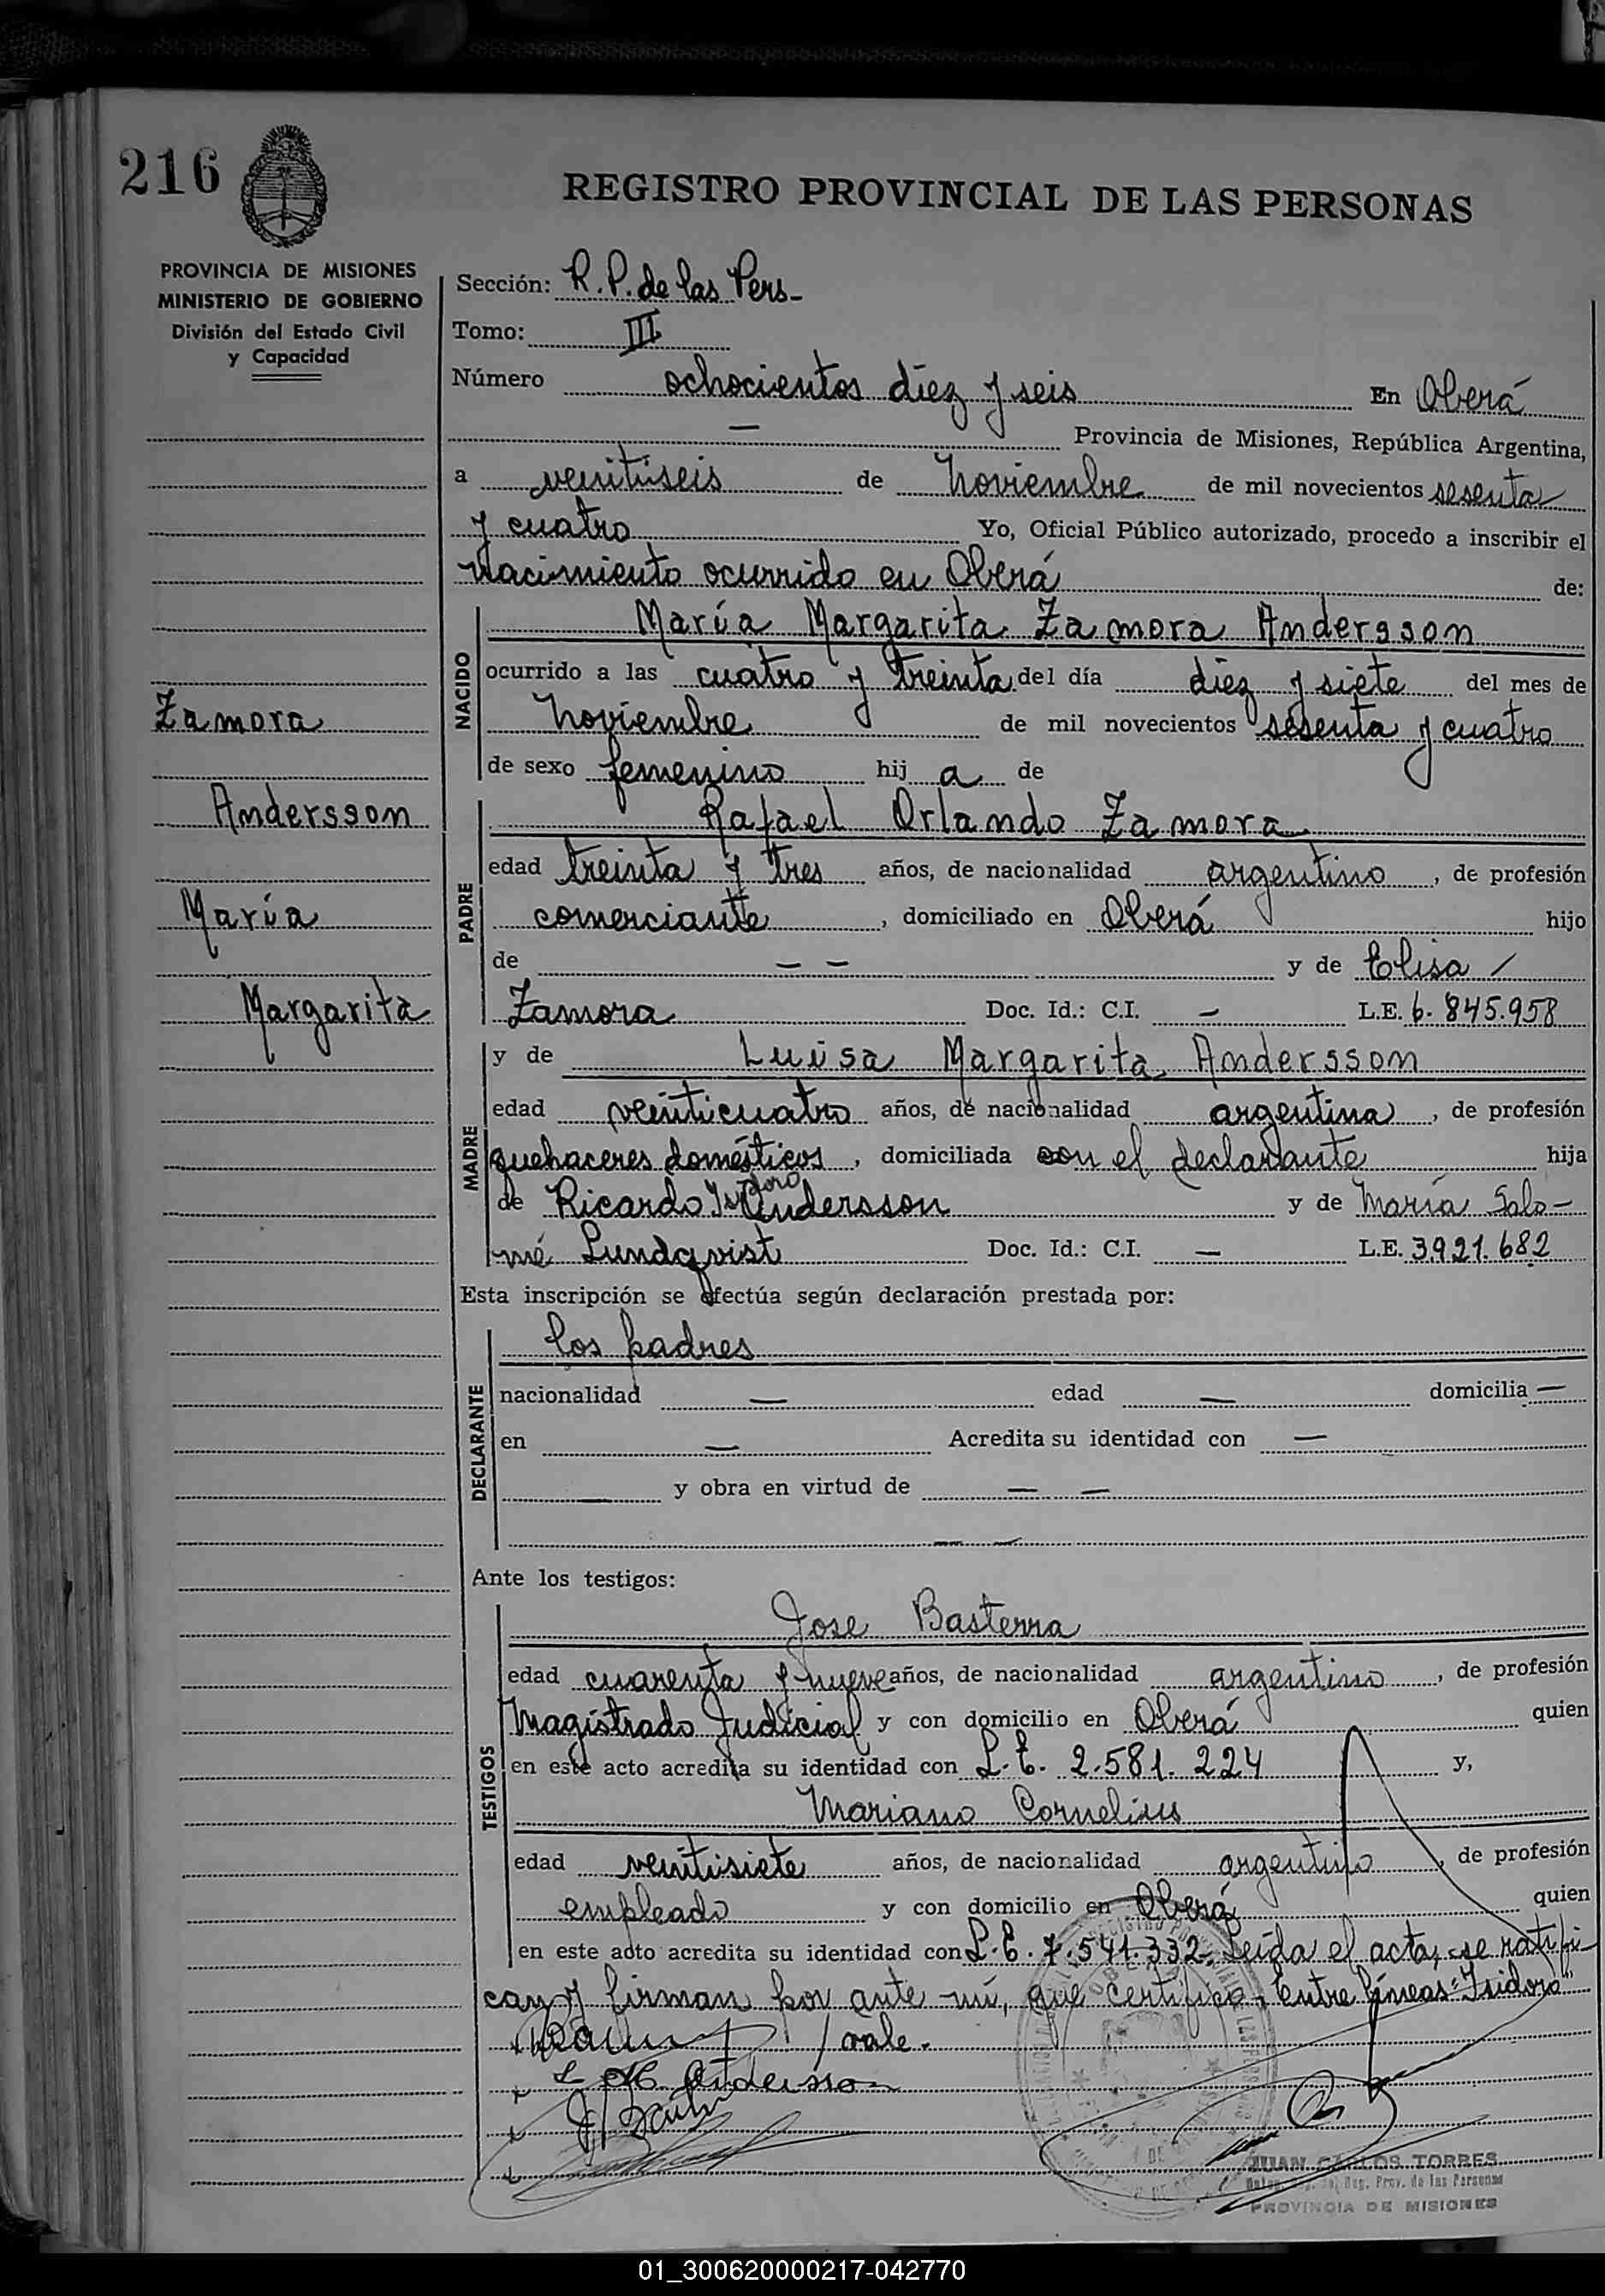 216
REGISTRO PROVINCIAL DE LAS PERSONAS
PROVINCIA DE MISIONES
MINISTERIO DE GOBIERNO
División del Estado Civil
y Capacidad
Sección: R. P. de las Pers-
Tomo: III
Número ochocientos diez y seis En Oberá
— Provincia de Misiones, República Argentina,
a veintiseis de Noviembre de mil novecientos sesenta
y cuatro Yo, Oficial Público autorizado, procedo a inscribir el
Nacimiento ocurrido en Oberá de:
NACIDO
María Margarita Zamora Andersson
ocurrido a las cuatro y treinta del día diez y siete del mes de
Noviembre de mil novecientos sesenta y cuatro
de sexo femenino hij a de
Zamora
Andersson
María
Margarita
PADRE
Rafael Orlando Zamora
edad treinta y tres años, de nacionalidad argentino, de profesión
comerciante, domiciliado en Oberá hijo
de — — y de Elisa /
Zamora Doc. Id.: C.I. — L.E. 6.845.958
MADRE
y de Luisa Margarita Andersson
edad veinticuatro años, de nacionalidad argentina, de profesión
quehaceres domésticos, domiciliada con el declarante hija
de Ricardo Isidoro Andersson y de María Salo-
mé Lundqvist Doc. Id.: C.I. — L.E. 3.921.682
Esta inscripción se efectúa según declaración prestada por:
DECLARANTE
los padres
nacionalidad — edad — domicilia —
en — Acredita su identidad con —
— y obra en virtud de — —
— —
Ante los testigos:
TESTIGOS
Jose Basterra
edad cuarenta y nueve años, de nacionalidad argentino, de profesión
Magistrado Judicial y con domicilio en Oberá quien
en este acto acredita su identidad con L.E. 2.581.224 y,
Mariano Cornelius
edad veintisiete años, de nacionalidad argentino, de profesión
empleado y con domicilio en Oberá quien
en este acto acredita su identidad con L.E. 7.541.332- Leída el acta, se ratifi-
can y firman por ante mí, que certifico.- Entre líneas "Isidoro"
/ vale.-
L M Andersson
JUAN CARLOS TORRES
Reg. Prov. de las Personas
PROVINCIA DE MISIONES
01_300620000217-042770